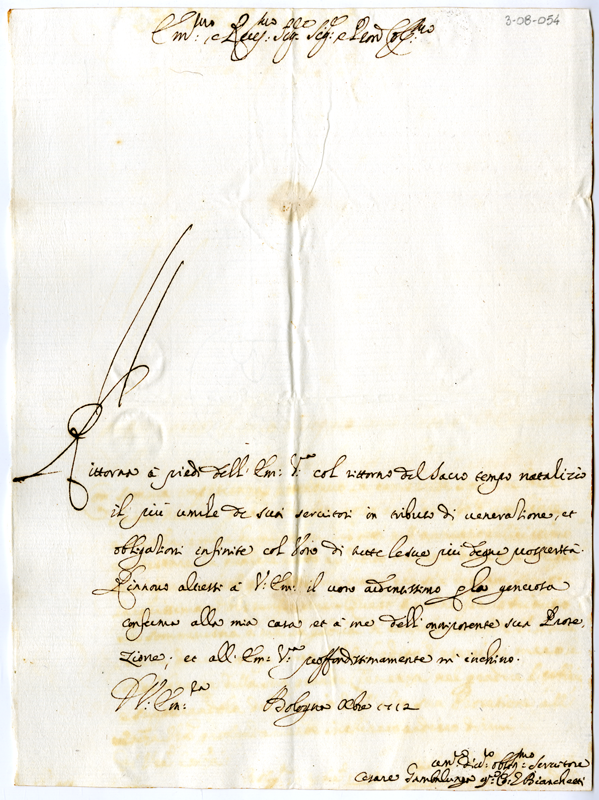 3-08-054
Em:mo e Rev:mo Sig:re Sig:re e Pron Col:mo
Rittorna à piedi dell' Em: V.ra col rittorno del Sacro tempo natalizio
il più umile de suoi servitori in tributo di veneratione, et
obligationi infinite col Voto di tutte le sue più degne prosperità.
Rinnovo altresì à V: Em: il voto ardentissimo p la generosa
conferma alla mia casa et à me dell' onnipotente sua Prote
zione, et all' Em: V.ra proffondissimamente m' inchino.
D V: Em:za Bologna Xbre 1712
um:o di:mo obblig:mo Servitore
Cesare Bianchetti